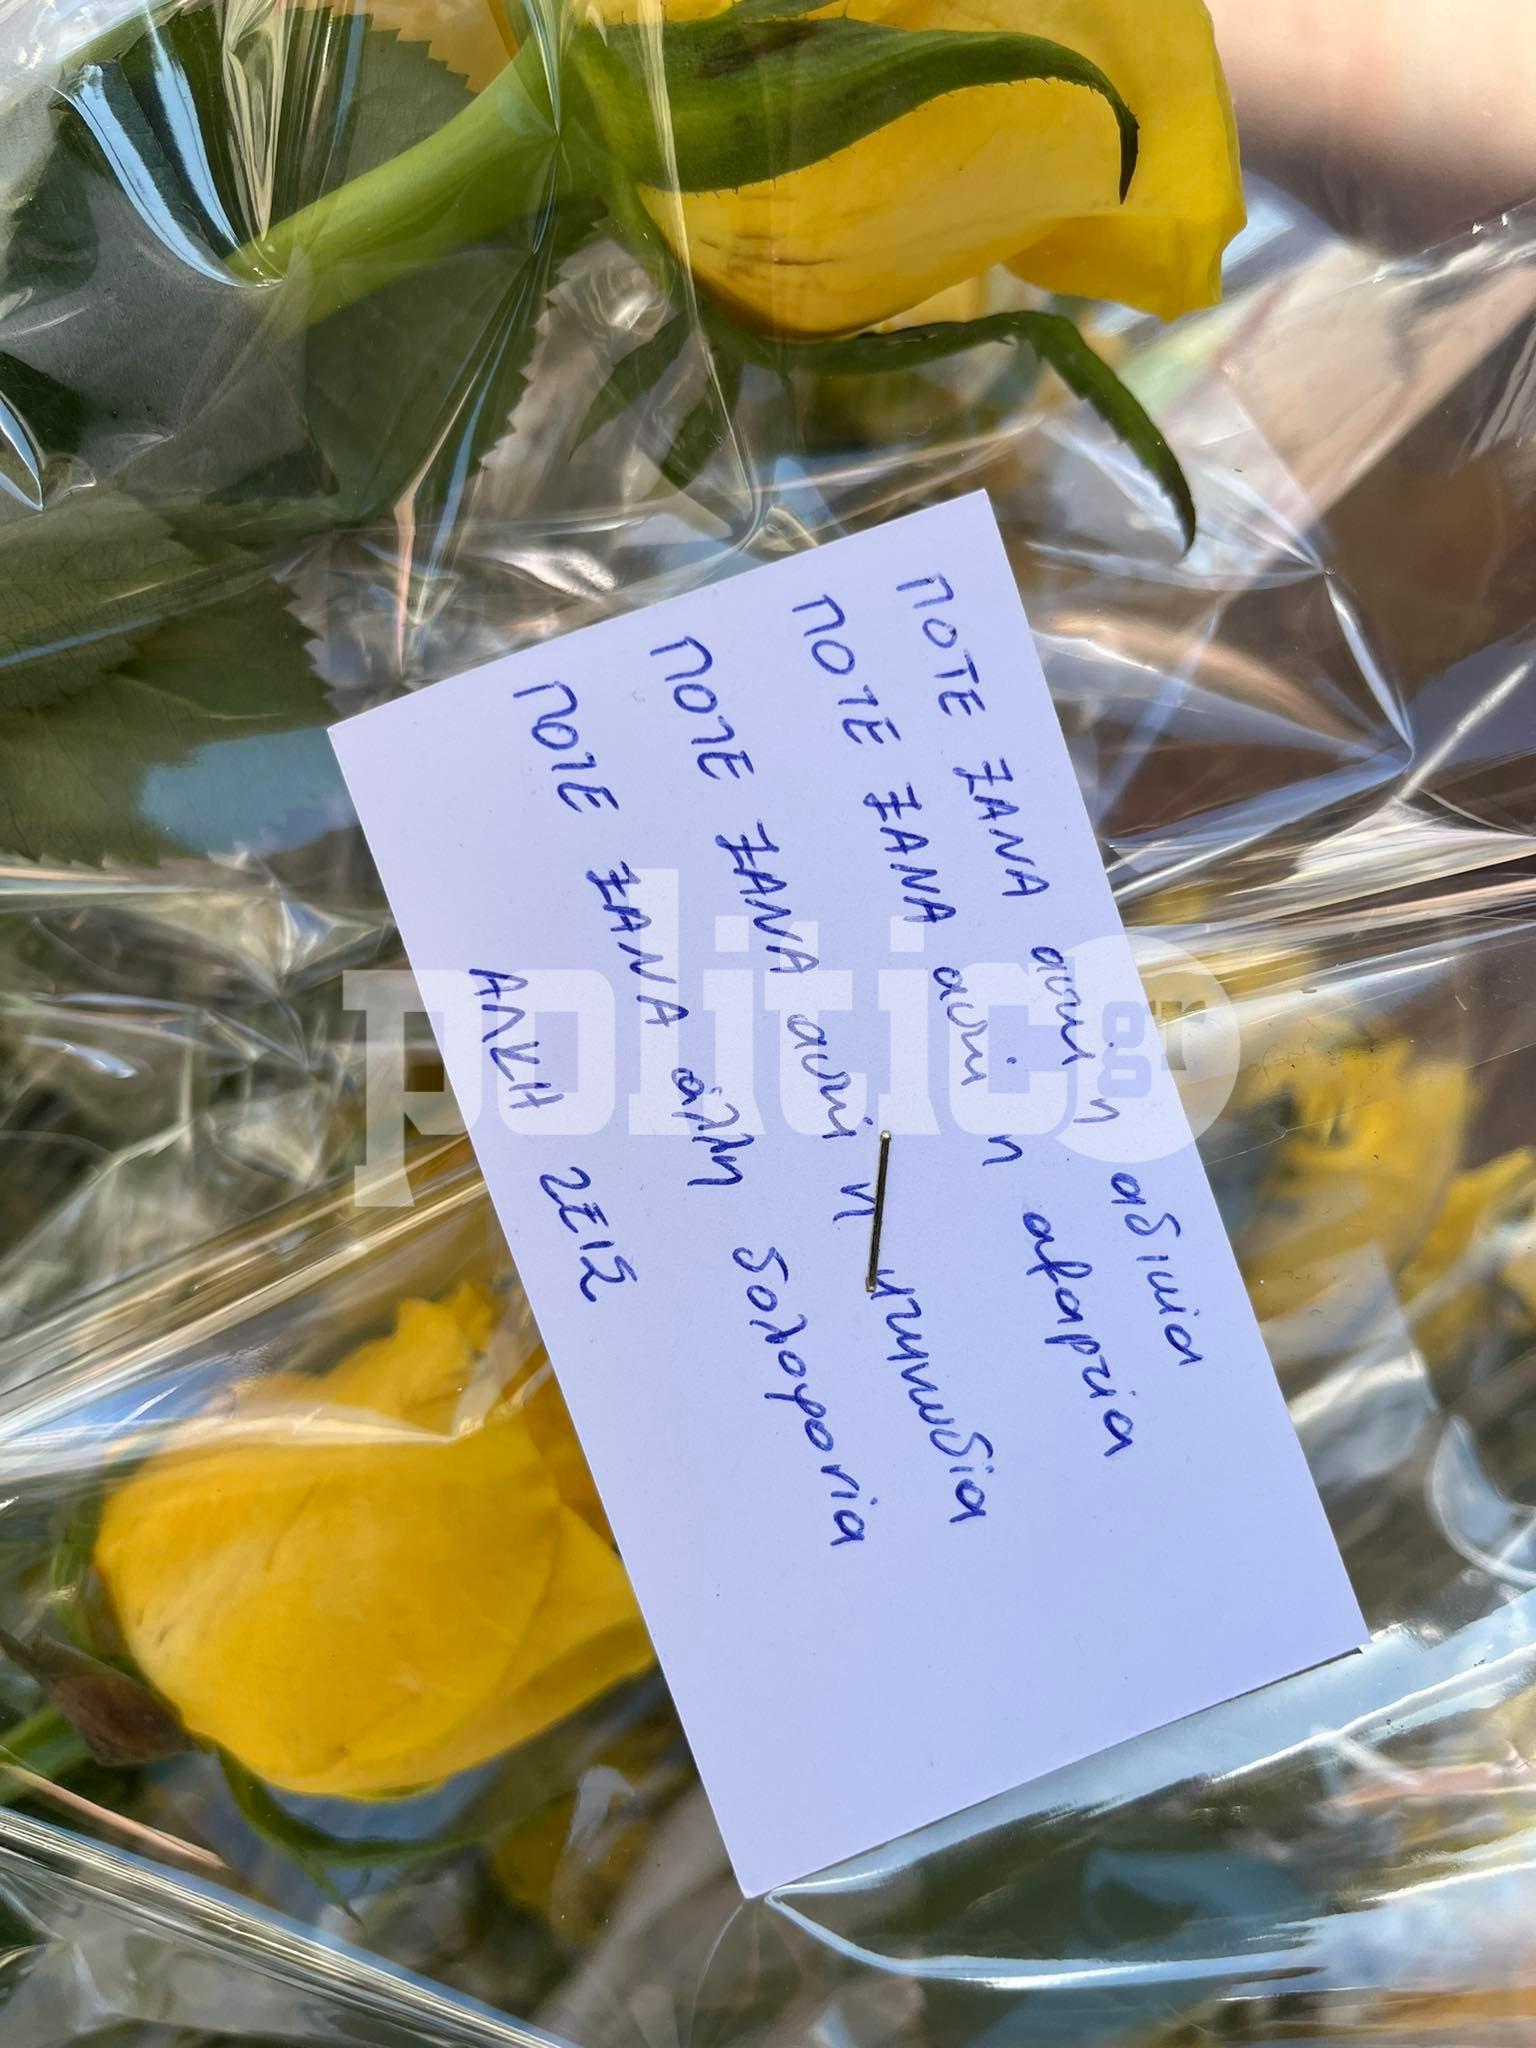 ΠΟΤΕ ΞΑΝΑ αυτή η αδικία
ΠΟΤΕ ΞΑΝΑ αυτή η αβαρτία
ΠΟΤΕ ΞΑΝΑ αυτή η κτηνωδία
ΠΟΤΕ ΞΑΝΑ άλλη δολοφονία
ΑΛΚΗ ΖΕΙΣ
politic gr